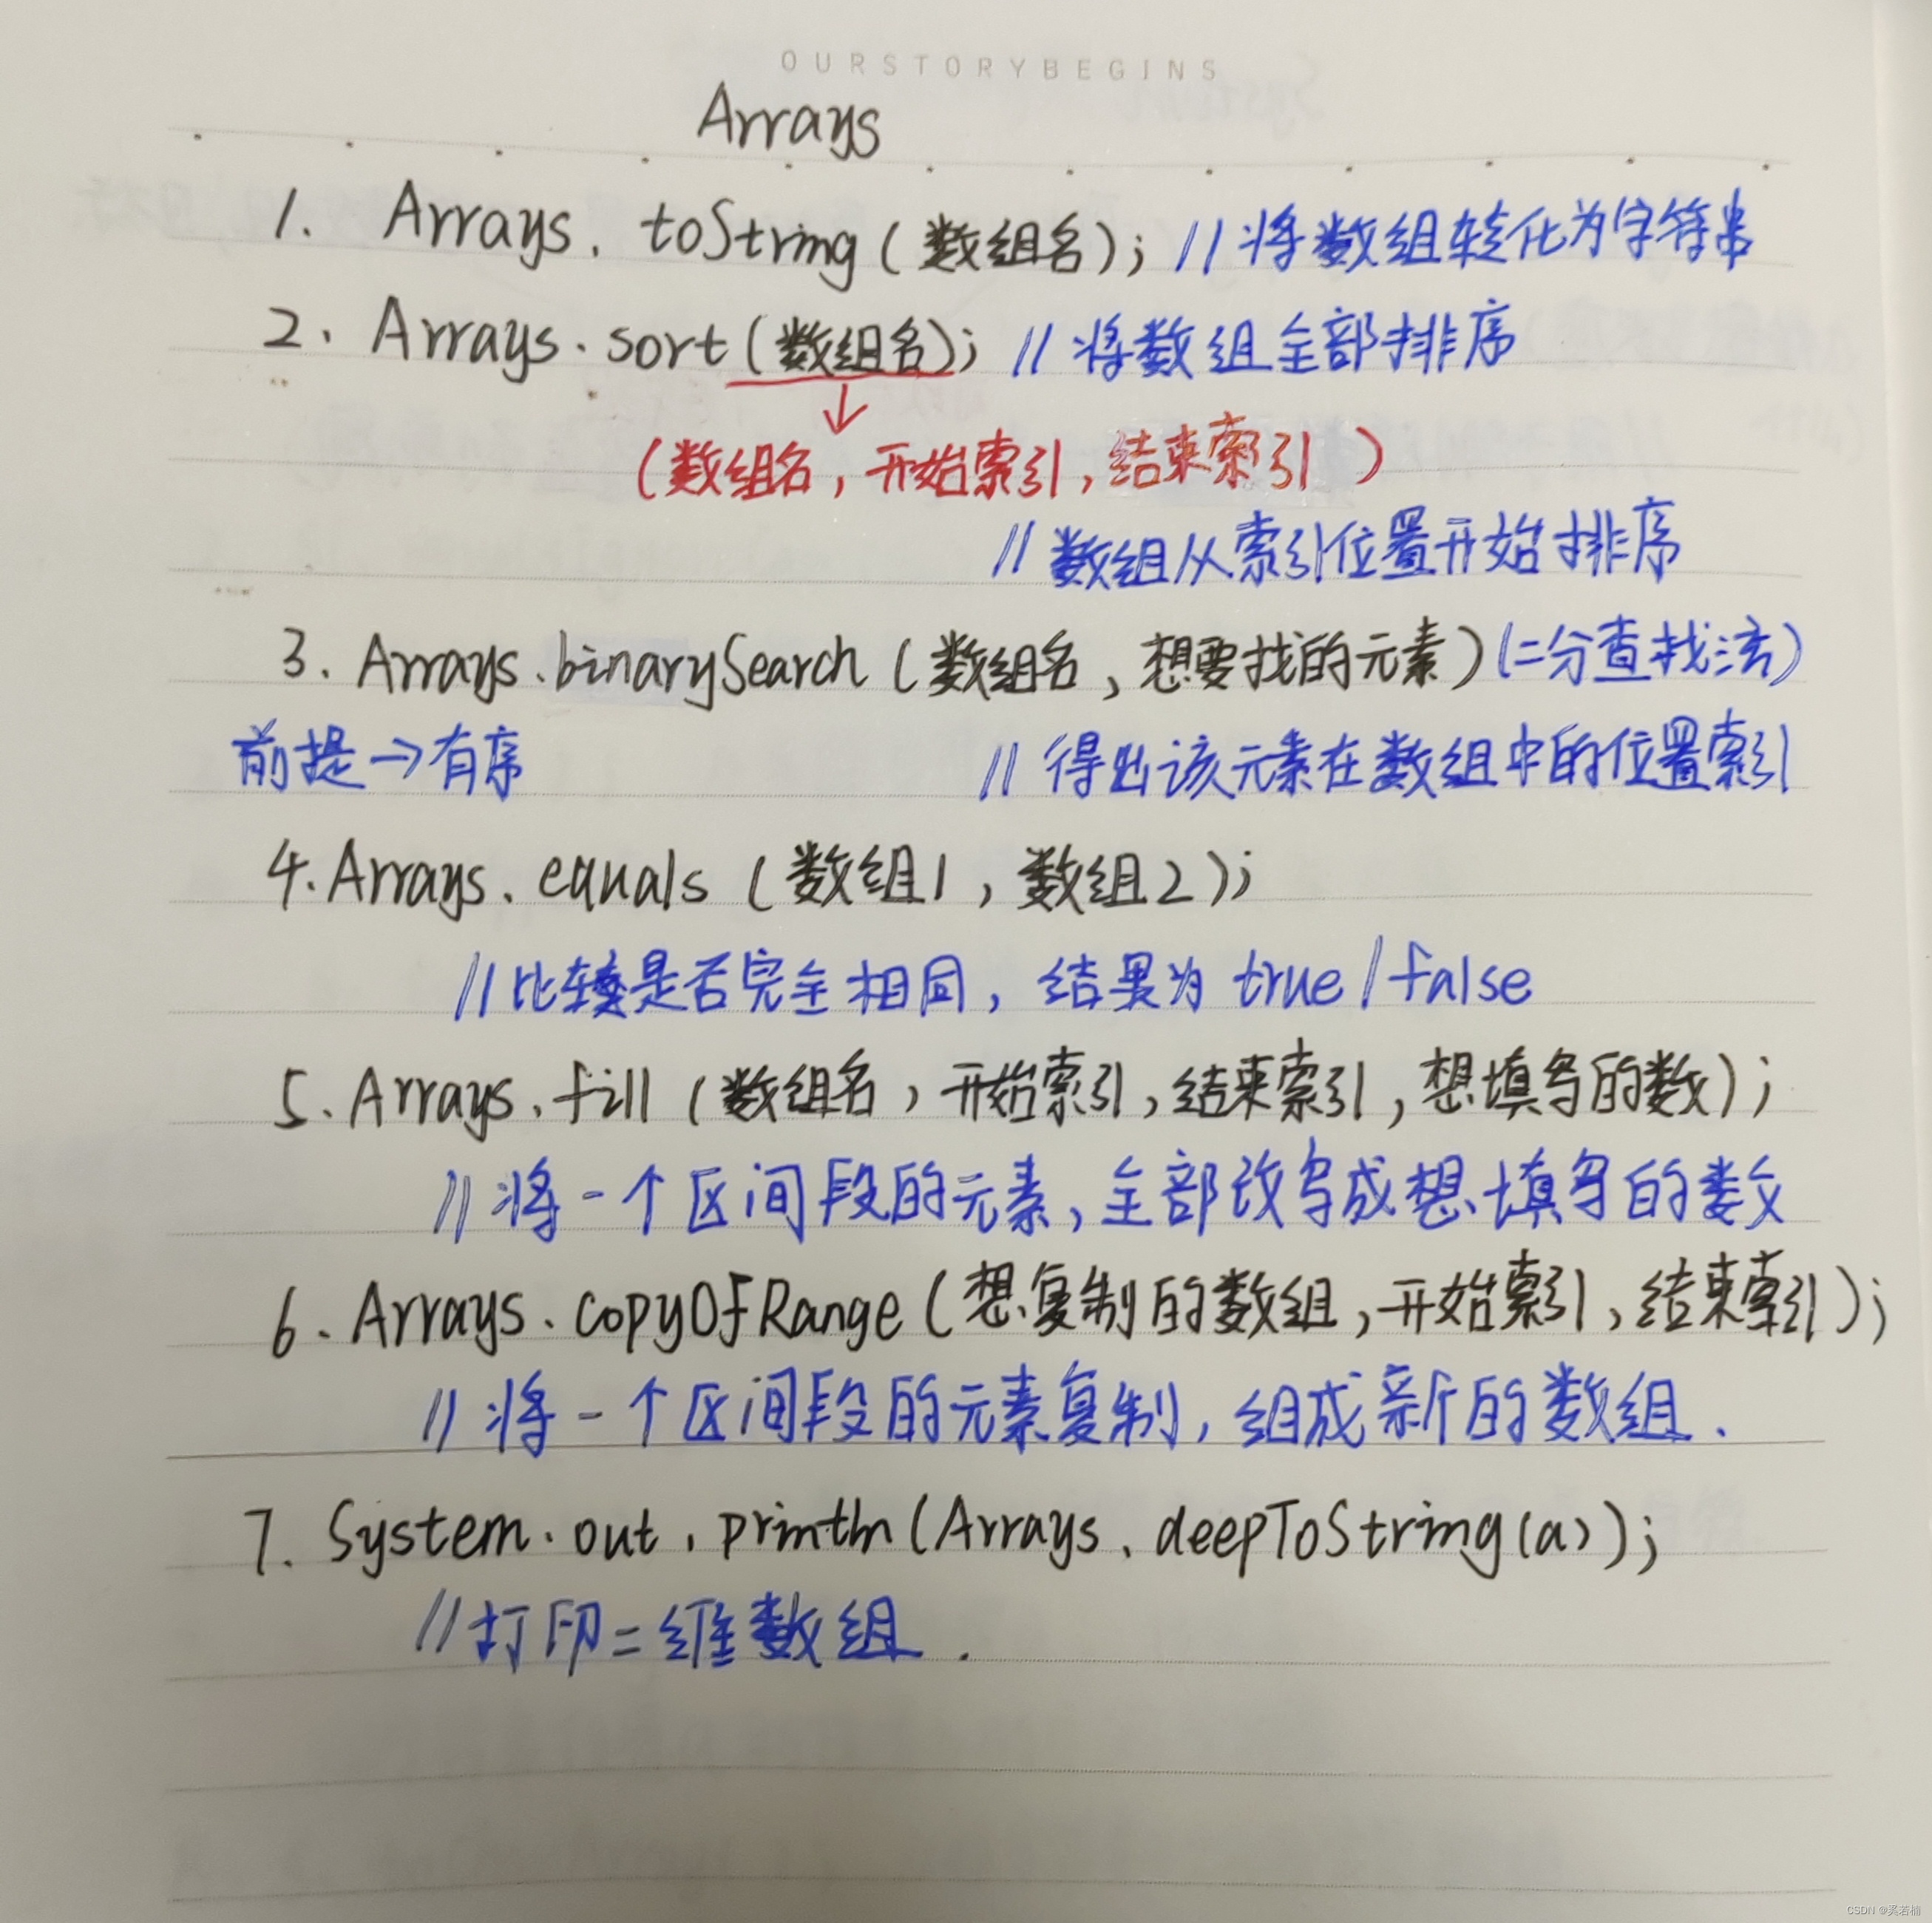 OURSTORYBEGINS
Arrays
1. Arrays.toString(数组名); //将数组转化为字符串
2. Arrays.sort(数组名); //将数组全部排序
(数组名,开始索引,结束索引)
//数组从索引位置开始排序
3. Arrays.binarySearch(数组名,想要找的元素)(二分查找法)
前提→有序 //得出该元素在数组中的位置索引
4. Arrays.equals(数组1,数组2);
//比较是否完全相同,结果为 true/false
5. Arrays.fill(数组名,开始索引,结束索引,想填写的数);
//将一个区间段的元素,全部改写成想填写的数
6. Arrays.copyOfRange(想复制的数组,开始索引,结束索引);
//将一个区间段的元素复制,组成新的数组.
7. System.out.println(Arrays.deepToString(a));
//打印二维数组.
CSDN @奚若楠